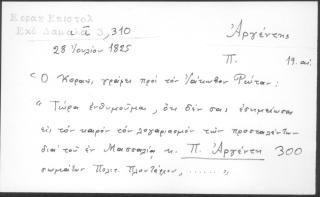 Κοραη Επιστολ
Εκδ Δαμαλᾶ 3, 310
28 Ἰουνίου 1825
Ἀργέντης
Π.
19. αἰ.
Ὁ Κοραῆς, γράφει πρὸς τὸν Ἰάκωβον Ρώταν:
"Τώρα ἐνθυμοῦμαι, ὅτι δὲν σας ἐσημείωσα
εἰς τὸν καιρὸν τὸν λογαριασμὸν τῶν προσταλέντων
διὰ τοῦ ἐν Μασσαλίᾳ κ. Π. Ἀργέντη 300
σωμάτων Πολιτ. Πλουτάρχου, ........"